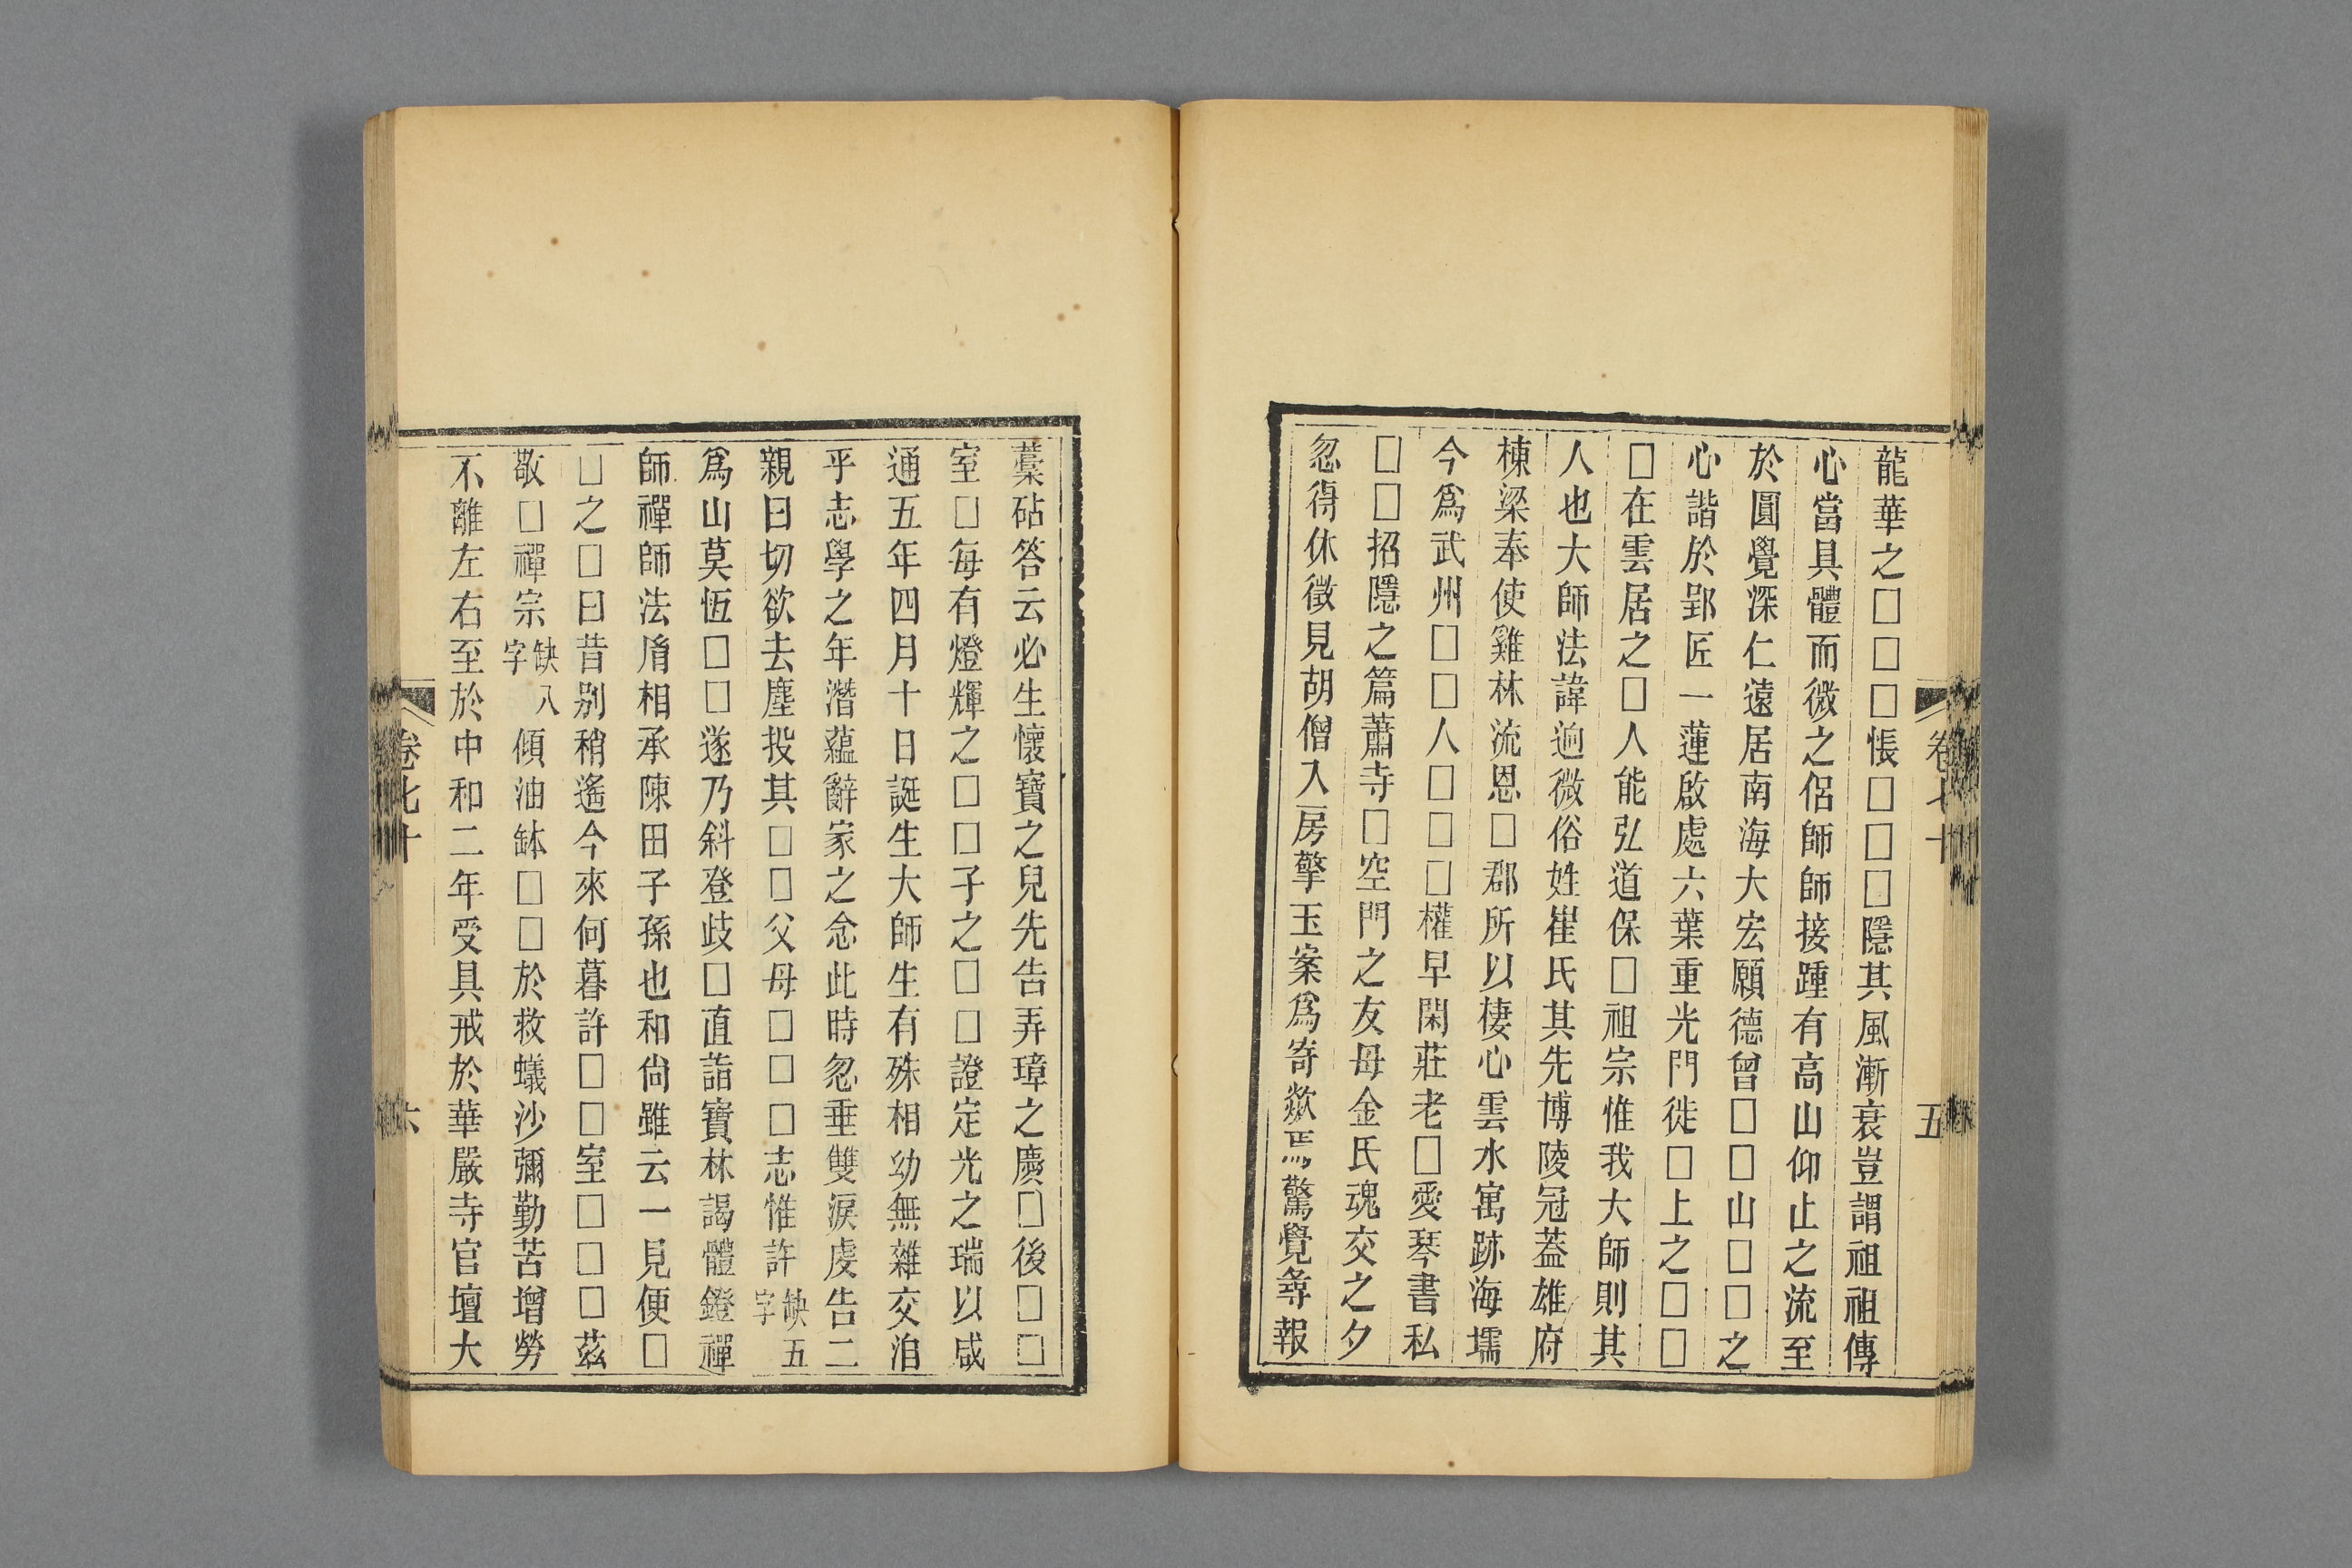 龍華之□□□悵□□□隱其風漸衰豈謂祖祖傳
心當具體而微之侶師師接踵有高山仰止之流至
於圓覺深仁遠居南海大宏願德曾□□山□□之
心諧於郢匠一蓮啟處六葉重光門徙□上之□□
□在雲居之□人能弘道保□祖宗惟我大師則其
人也大師法諱逈微俗姓崔氏其先博陵冠蓋雄府
棟梁奉使雞林流恩□郡所以棲心雲水寓跡海壖
今爲武州□□人□□□權早閑莊老□愛琴書私
□□招隱之篇蕭寺□空門之友母金氏魂交之夕
忽得休徵見胡僧入房擎玉案爲寄欻焉驚覺㝷報
卷七十
五
藁砧答云必生懷寶之兒先告弄璋之慶□後□□
室□每有燈輝之□□子之□□證定光之瑞以咸
通五年四月十日誕生大師生有殊相幼無雜交洎
乎志學之年潛蘊辭家之念此時忽垂雙淚虔告二
親曰切欲去塵投其□□父母□□□志惟許缺五字
爲山莫恆□□遂乃斜登歧□直詣寶林謁體鐙禪
師禪師法胤相承陳田子孫也和尙雖云一見便□
□之□曰昔別稍遙今來何暮許□□室□□□茲
敬□禪宗缺八字傾油缽□□於救蟻沙彌勤苦增勞
不離左右至於中和二年受具戒於華嚴寺官壇大
卷七十
六